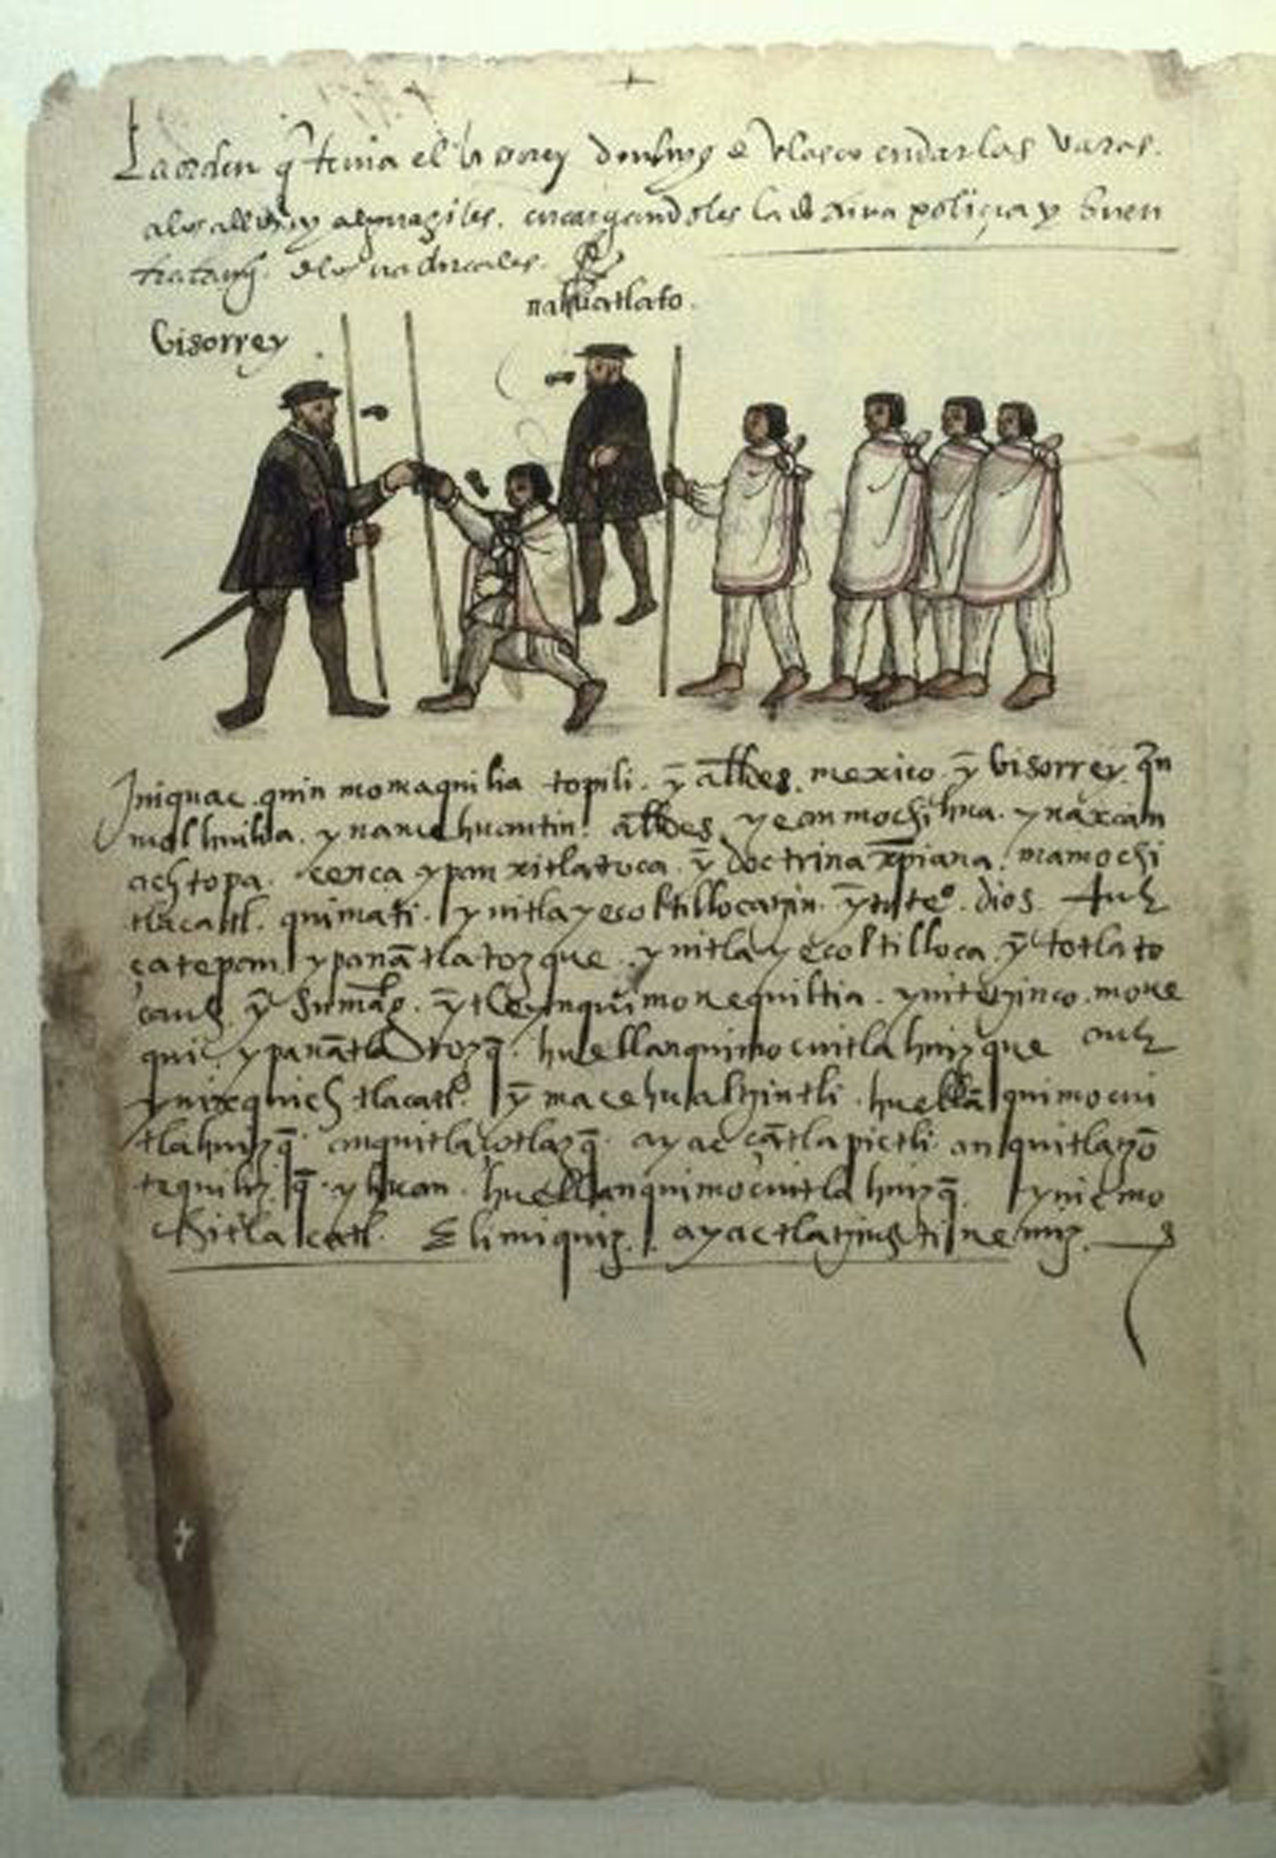 La orden q̄ tenia el visorrey don luys de Velasco en dar las varas.
a los alldes y alguaziles. encargandoles la doctrina poliçia y buen
tratamyº. de los naturales.
nahuatlato.
Visorrey
Iniquac. quin momaquilia topili. yn alldes. mexico. yn Visorrey. qn
molhuilia. yn amehuantin. alldes ye anmochihua. yn axcan
achtopa. cenca ypan xitlatoca. yn doctrina xpiana. ma mochi
tlacatl. quimati. yn itlayecoltillocatzin. yn toteº. dios. Auh
çatepan. ypan antlatozque. yn itlayecoltilloca. yn totlato
cauh. yn Su magd. yn tleyn quimonequiltia. yn itetzinco. mone
qui. ypan antlatozq̄. huel anquimocuitlahuizque auh
yn ixquich tlacatl. yn macehualtzintli. huel an quimocui
tlahuizq̄. anquitlaçotlazq̄. ayac çan tlapictli. anquitlatzon
tequilizq̄. yhuan. huel anquimocuitlahuizq̄. ynic mo
chi tlacatl. Elimiquiz. ayac tlatziuhtinemiz.